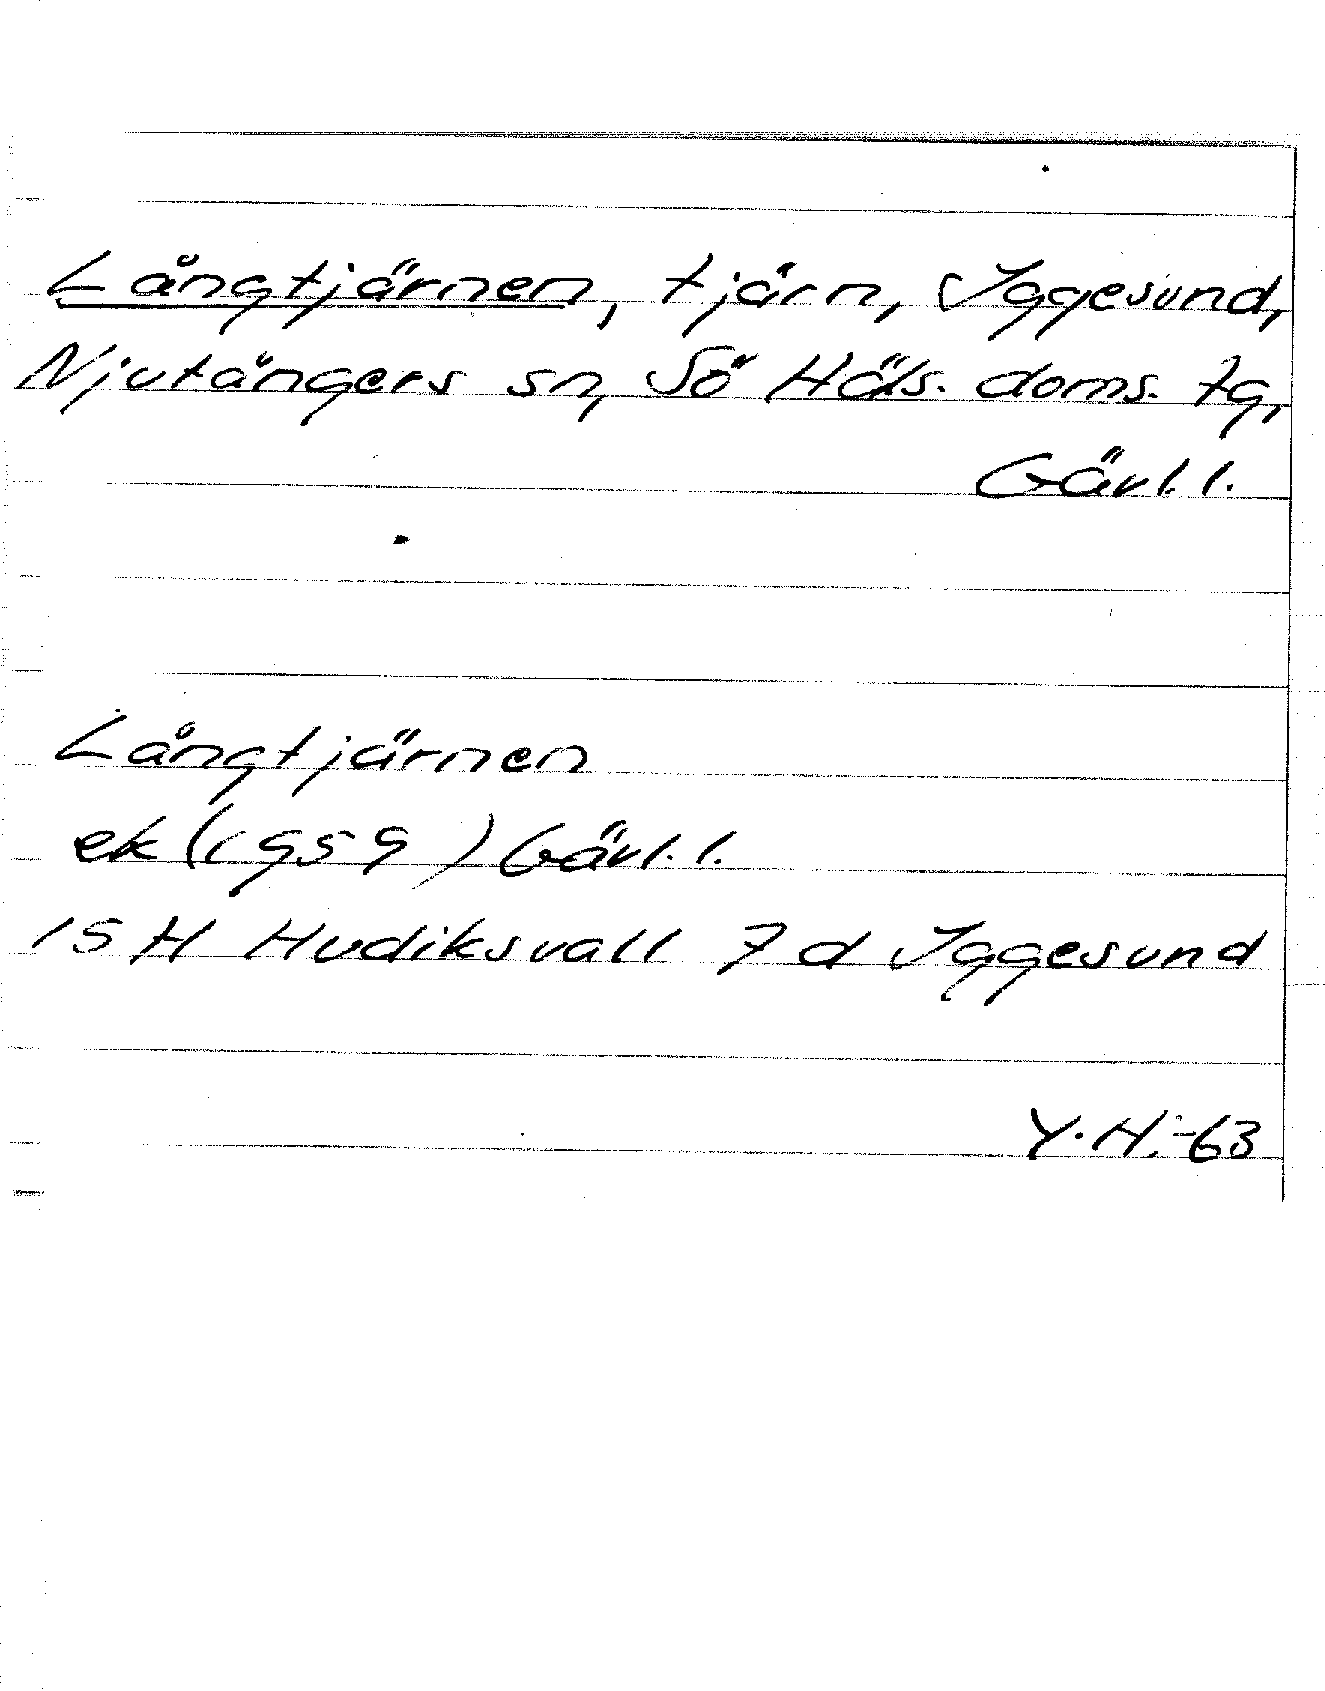 Långtjärnen, tjärn, Iggesund,
Njutångers sn, Sö Häls. doms. tg,
Gävl. l.
Långtjärnen
ek (1959) Gävl. l.
15 H Hudiksvall 7 d Iggesund
Y.H.-63